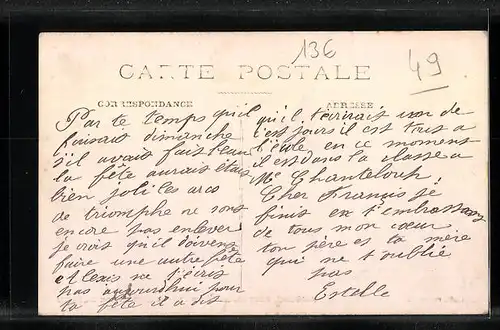 136
49
CARTE POSTALE
CORRESPONDANCE
ADRESSE
Par te temps qu'il
faisait dimanche
s'il avait fait beau
la fête aurait était
bien joli les arcs
de triomphe ne sont
encore pas enlever
je crois qu'il doivent
faire une autre fête
Alexis ne t'écris
pas aujourd'hui pour
ta fête il a dit
qu'il t'ecrirais un de
c'est jours il est tous a
l'école en ce moment
il est dans la classe a
Mr Chanteloup
Cher François je
finis en t'embrassant
de tous mon cœur
ton père et ta mère
qui ne t'oublie
pas
Estelle